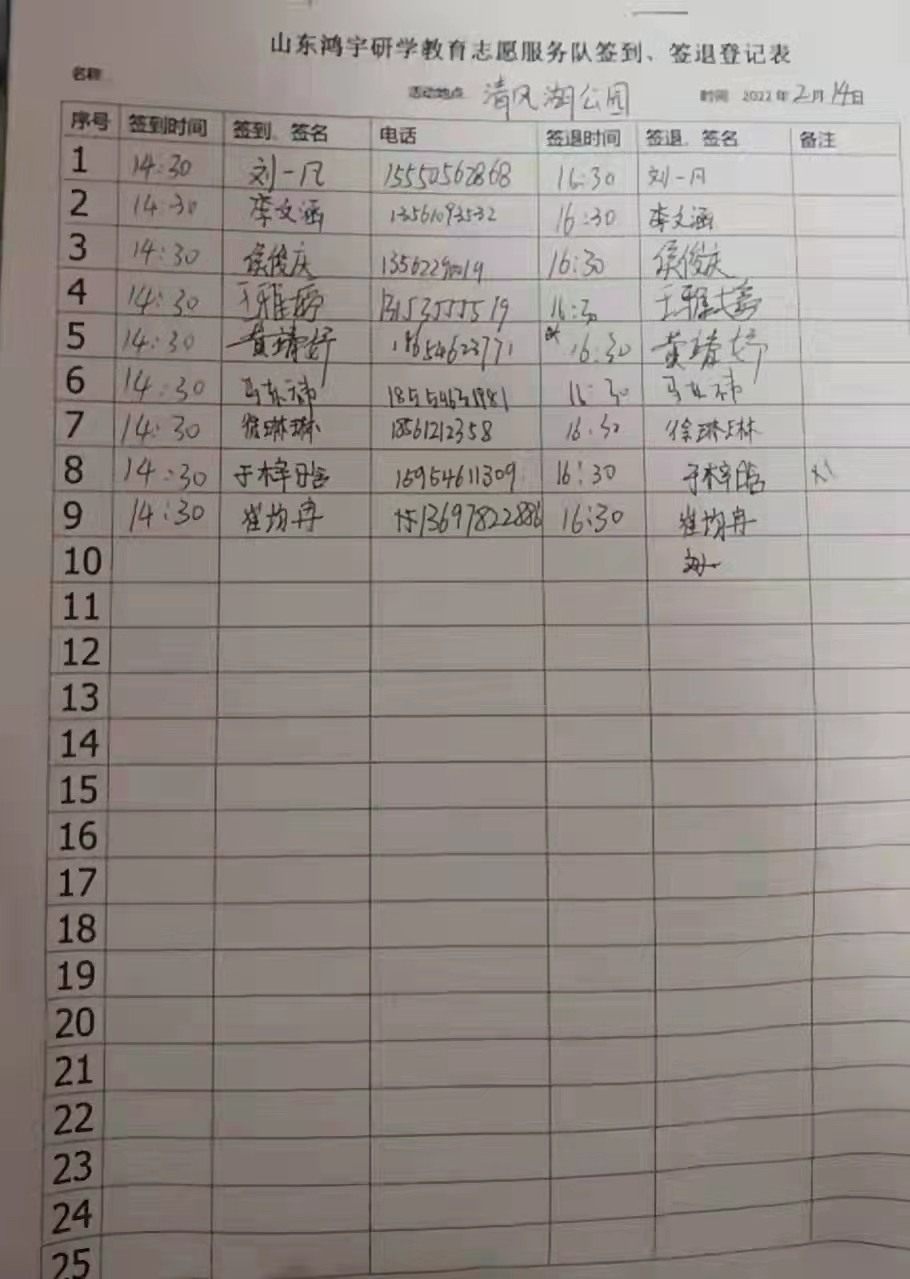 山东鸿宇研学教育志愿服务队签到、签退登记表
名称 活动地点 清风湖公园 时间 2022年2月14日
序号 签到时间 签到、签名 电话 签退时间 签退、签名 备注
1 14:30 刘一凡 15550562868 16:30 刘一凡
2 14:30 李文涵 13561093532 16:30 李文涵
3 14:30 侯俊庆 16:30 侯俊庆
4 14:30 16:30
5 14:30 16:30
6 14:30 16:30
7 14:30 徐琳琳 18561212358 16:30 徐琳琳
8 14:30 于梓晗 15954611309 16:30 于梓晗
9 14:30 崔均冉 13697822886 16:30 崔均冉
10
11
12
13
14
15
16
17
18
19
20
21
22
23
24
25